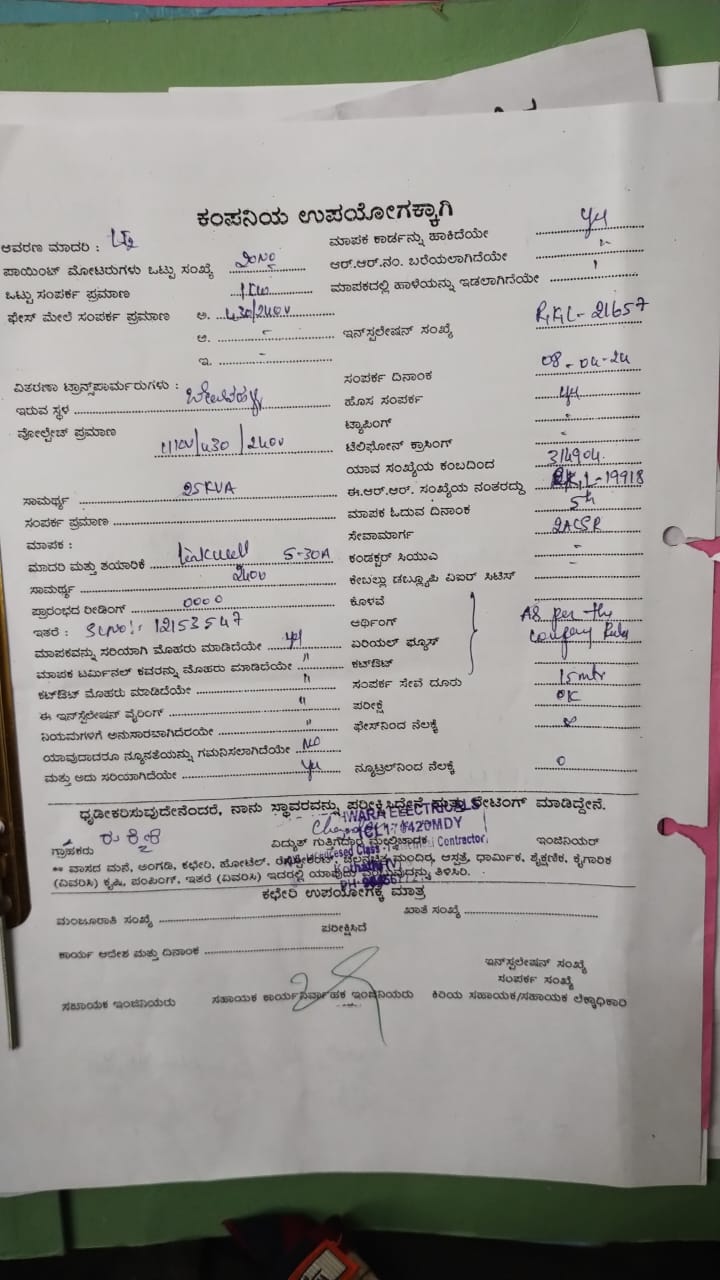 ಕಂಪನಿಯ ಉಪಯೋಗಕ್ಕಾಗಿ
ಆವರಣ ಮಾದರಿ :
ಪಾಯಿಂಟ್ ಮೋಟರುಗಳು ಒಟ್ಟು ಸಂಖ್ಯೆ
ಒಟ್ಟು ಸಂಪರ್ಕ ಪ್ರಮಾಣ 1KW
ಫೇಸ್ ಮೇಲೆ ಸಂಪರ್ಕ ಪ್ರಮಾಣ ಅ. 430/240V
ಆ. -
ಇ. -
ವಿತರಣಾ ಟ್ರಾನ್ಸ್‌ಫಾರ್ಮರುಗಳು :
ಇರುವ ಸ್ಥಳ
ವೋಲ್ಟೇಜ್ ಪ್ರಮಾಣ 11KV/430/240V
ಸಾಮರ್ಥ್ಯ 25KVA
ಸಂಪರ್ಕ ಪ್ರಮಾಣ
ಮಾಪಕ :
ಮಾದರಿ ಮತ್ತು ತಯಾರಿಕೆ Linkwell 5-30A
ಸಾಮರ್ಥ್ಯ 240V
ಪ್ರಾರಂಭದ ರೀಡಿಂಗ್ 0000
ಇತರೆ : Sl.No:- 12153547
ಮಾಪಕವನ್ನು ಸರಿಯಾಗಿ ಮೊಹರು ಮಾಡಿದೆಯೇ yes
ಮಾಪಕ ಟರ್ಮಿನಲ್ ಕವರನ್ನು ಮೊಹರು ಮಾಡಿದೆಯೇ "
ಕಟ್‌ಔಟ್ ಮೊಹರು ಮಾಡಿದೆಯೇ "
ಈ ಇನ್‌ಸ್ಟಲೇಷನ್ ವೈರಿಂಗ್ "
ನಿಯಮಗಳಿಗೆ ಅನುಸಾರವಾಗಿದೆಯೇ "
ಯಾವುದಾದರೂ ನ್ಯೂನತೆಯನ್ನು ಗಮನಿಸಲಾಗಿದೆಯೇ No
ಮತ್ತು ಅದು ಸರಿಯಾಗಿದೆಯೇ yes
ಮಾಪಕ ಕಾರ್ಡನ್ನು ಹಾಕಿದೆಯೇ yes
ಆರ್.ಆರ್.ನಂ. ಬರೆಯಲಾಗಿದೆಯೇ "
ಮಾಪಕದಲ್ಲಿ ಹಾಳೆಯನ್ನು ಇಡಲಾಗಿದೆಯೇ
ಇನ್‌ಸ್ಟಲೇಷನ್ ಸಂಖ್ಯೆ 21657
ಸಂಪರ್ಕ ದಿನಾಂಕ 08-04-24
ಹೊಸ ಸಂಪರ್ಕ yes
ಟ್ಯಾಪಿಂಗ್ -
ಟೆಲಿಫೋನ್ ಕ್ರಾಸಿಂಗ್ -
ಯಾವ ಸಂಖ್ಯೆಯ ಕಂಬದಿಂದ 314904.
ಈ.ಆರ್.ಆರ್. ಸಂಖ್ಯೆಯ ನಂತರದ್ದು 19918
ಮಾಪಕ ಓದುವ ದಿನಾಂಕ 5th
ಸೇವಾಮಾರ್ಗ 2ACSR
ಕಂಡಕ್ಟರ್ ಸಿಯುವಿ -
ಕೇಬಲ್ಲು ಡಬ್ಲ್ಯೂಪಿ ವಿಐಆರ್ ಸಿಟಿಸ್ -
ಕೊಳವೆ
ಅರ್ಥಿಂಗ್ As per the
ಏರಿಯಲ್ ಫ್ಯೂಸ್ Company Rules
ಕಟ್‌ಔಟ್
ಸಂಪರ್ಕ ಸೇವೆ ದೂರು 15mtr
ಪರೀಕ್ಷೆ OK
ಫೇಸ್‌ನಿಂದ ನೆಲಕ್ಕೆ
ನ್ಯೂಟ್ರಲ್‌ನಿಂದ ನೆಲಕ್ಕೆ 0
ಧೃಡೀಕರಿಸುವುದೇನೆಂದರೆ, ನಾನು ಸ್ಥಾವರವನ್ನು ಪರೀಕ್ಷಿಸಿದ್ದೇನೆ ಮತ್ತು ರೇಟಿಂಗ್ ಮಾಡಿದ್ದೇನೆ.
WARA ELECTRICALS
420MDY
ಗ್ರಾಹಕರು ವಿದ್ಯುತ್ ಗುತ್ತಿಗೆದಾರ ಮೇಲ್ವಿಚಾರಕ ಇಂಜಿನಿಯರ್
Contractor
** ವಾಸದ ಮನೆ, ಅಂಗಡಿ, ಕಛೇರಿ, ಹೋಟೆಲ್, ರೆಸ್ಟೋರೆಂಟ್, ಚಲನಚಿತ್ರ ಮಂದಿರ, ಆಸ್ಪತ್ರೆ, ಧಾರ್ಮಿಕ, ಶೈಕ್ಷಣಿಕ, ಕೈಗಾರಿಕ
(ವಿವರಿಸಿ) ಕೃಷಿ, ಪಂಪಿಂಗ್, ಇತರೆ (ವಿವರಿಸಿ) ಇದರಲ್ಲಿ ಯಾವುದು ತಿಳಿಸಿರಿ.
ಕಛೇರಿ ಉಪಯೋಗಕ್ಕೆ ಮಾತ್ರ
ಮಂಜೂರಾತಿ ಸಂಖ್ಯೆ ಖಾತೆ ಸಂಖ್ಯೆ
ಪರೀಕ್ಷಿಸಿದೆ
ಕಾರ್ಯ ಆದೇಶ ಮತ್ತು ದಿನಾಂಕ
ಇನ್‌ಸ್ಟಲೇಷನ್ ಸಂಖ್ಯೆ
ಸಂಪರ್ಕ ಸಂಖ್ಯೆ
ಸಹಾಯಕ ಇಂಜಿನಿಯರು ಸಹಾಯಕ ಕಾರ್ಯನಿರ್ವಾಹಕ ಇಂಜಿನಿಯರು ಕಿರಿಯ ಸಹಾಯಕ/ಸಹಾಯಕ ಲೆಕ್ಕಾಧಿಕಾರಿ